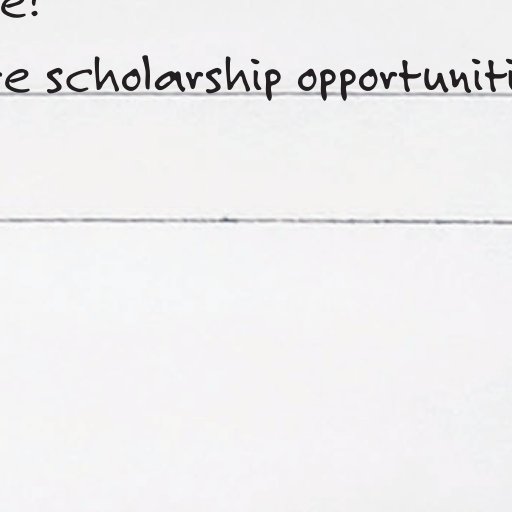 e!
e scholarship opportuniti